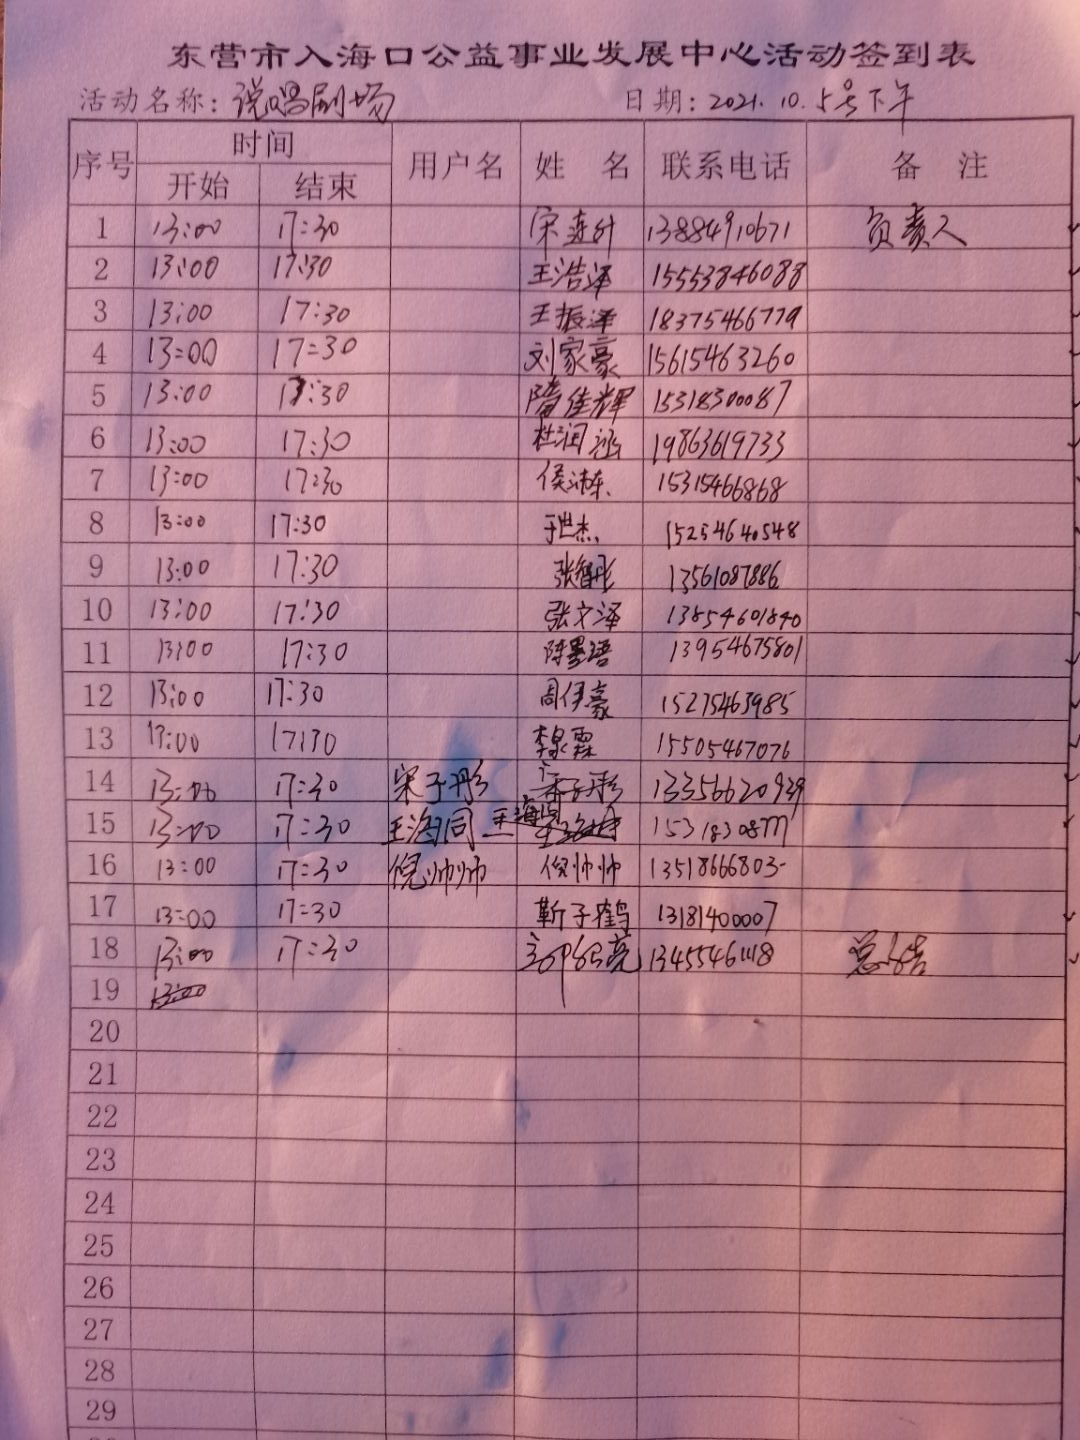 东营市入海口公益事业发展中心活动签到表
活动名称：说唱剧场 日期：2021.10.5号下午
序号 时间 用户名 姓 名 联系电话 备 注
开始 结束
1 13:00 17:30 宋连升 13884910671 负责人
2 13:00 17:30 王浩泽 15553846088
3 13:00 17:30 王振泽 18375466779
4 13:00 17:30 刘家豪 15615463260
5 13:00 17:30 隋佳辉 15318300087
6 13:00 17:30 杜润涵 19863619733
7 13:00 17:30 侯沛东 15315466868
8 13:00 17:30 于世杰 15254640548
9 13:00 17:30 张智彤 13561087886
10 13:00 17:30 张文泽 13854601840
11 13:00 17:30 陈墨语 13954675801
12 13:00 17:30 周伊豪 15275463985
13 13:00 17:30 李泉霖 15505467076
14 13:00 17:30 宋子彤 宋子彤 13356620939
15 13:00 17:30 王海同 王海同 1531830877
16 13:00 17:30 倪帅帅 倪帅帅 1351866680
17 13:00 17:30 靳子鹤 13181400007
18 13:00 17:30 13455461118 总结
19 13:00
20
21
22
23
24
25
26
27
28
29